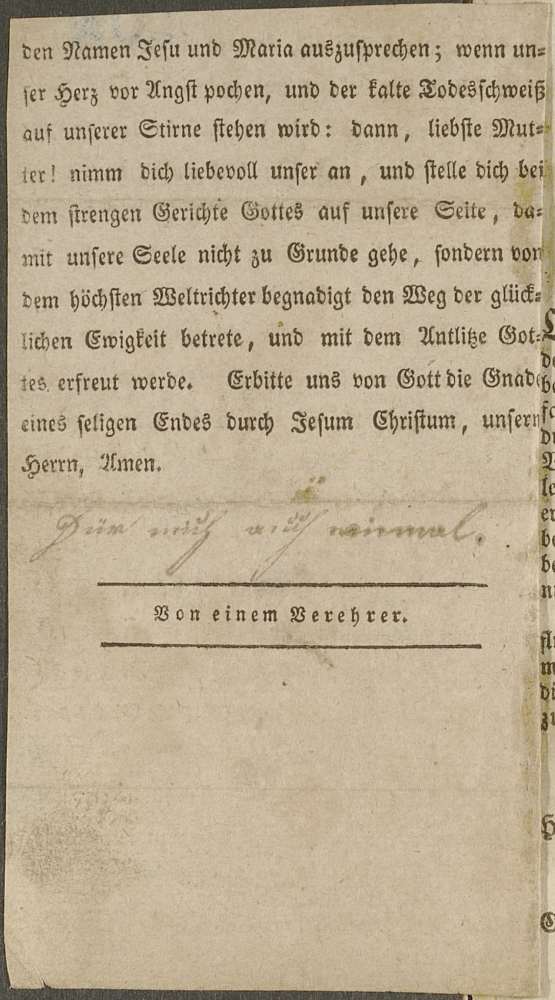 den Namen Jesu und Maria auszusprechen; wenn un=
ser Herz vor Angst pochen, und der kalte Todesschweiß
auf unserer Stirne stehen wird: dann, liebste Mut=
ter! nimm dich liebevoll unser an, und stelle dich bei
dem strengen Gerichte Gottes auf unsere Seite, da=
mit unsere Seele nicht zu Grunde gehe, sondern von
dem höchsten Weltrichter begnadigt den Weg der glück=
lichen Ewigkeit betrete, und mit dem Antlitze Got=
tes erfreut werde. Erbitte uns von Gott die Gnade
eines seligen Endes durch Jesum Christum, unsern
Herrn, Amen.
Für mich auch einmal.
Von einem Verehrer.